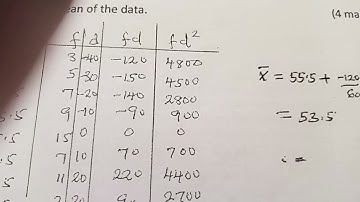 ean of the data.
(4 ma
f d fd fd²
3 -40 -120 4800
5 -30 -150 4500
7 -20 -140 2800
.5 9 -10 -90 900
.5 15 0 0 0
7 10 70 700
11 20 220 4400
2700
x̄ = 55.5 + -120
60
= 53.5
=